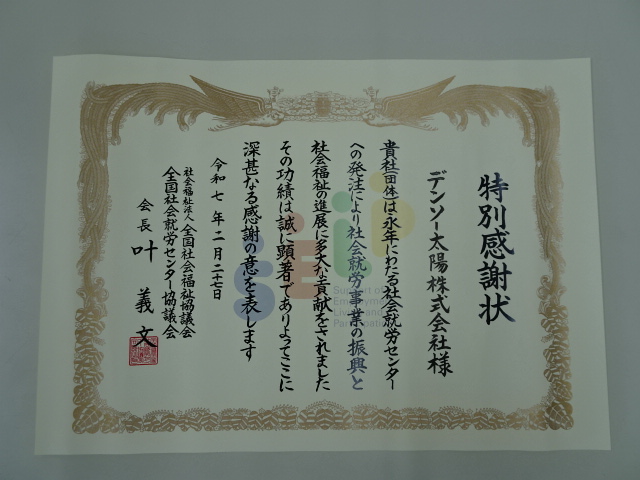 特別感謝状
デンソー太陽株式会社様
貴社(団体)は永年にわたる社会就労センター
への発注により社会就労事業の振興と
社会福祉の進展に多大な貢献をされました
その功績は誠に顕著でありよってここに
深甚なる感謝の意を表します
令和七年二月二十七日
社会福祉法人全国社会福祉協議会
全国社会就労センター協議会
会長 叶 義文
SELP
Support of
Employment
Living and
Participation